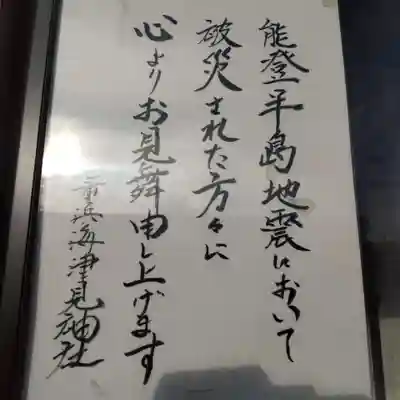 能登半島地震において
被災された方々に
心よりお見舞申し上げます
二重浜海津見神社